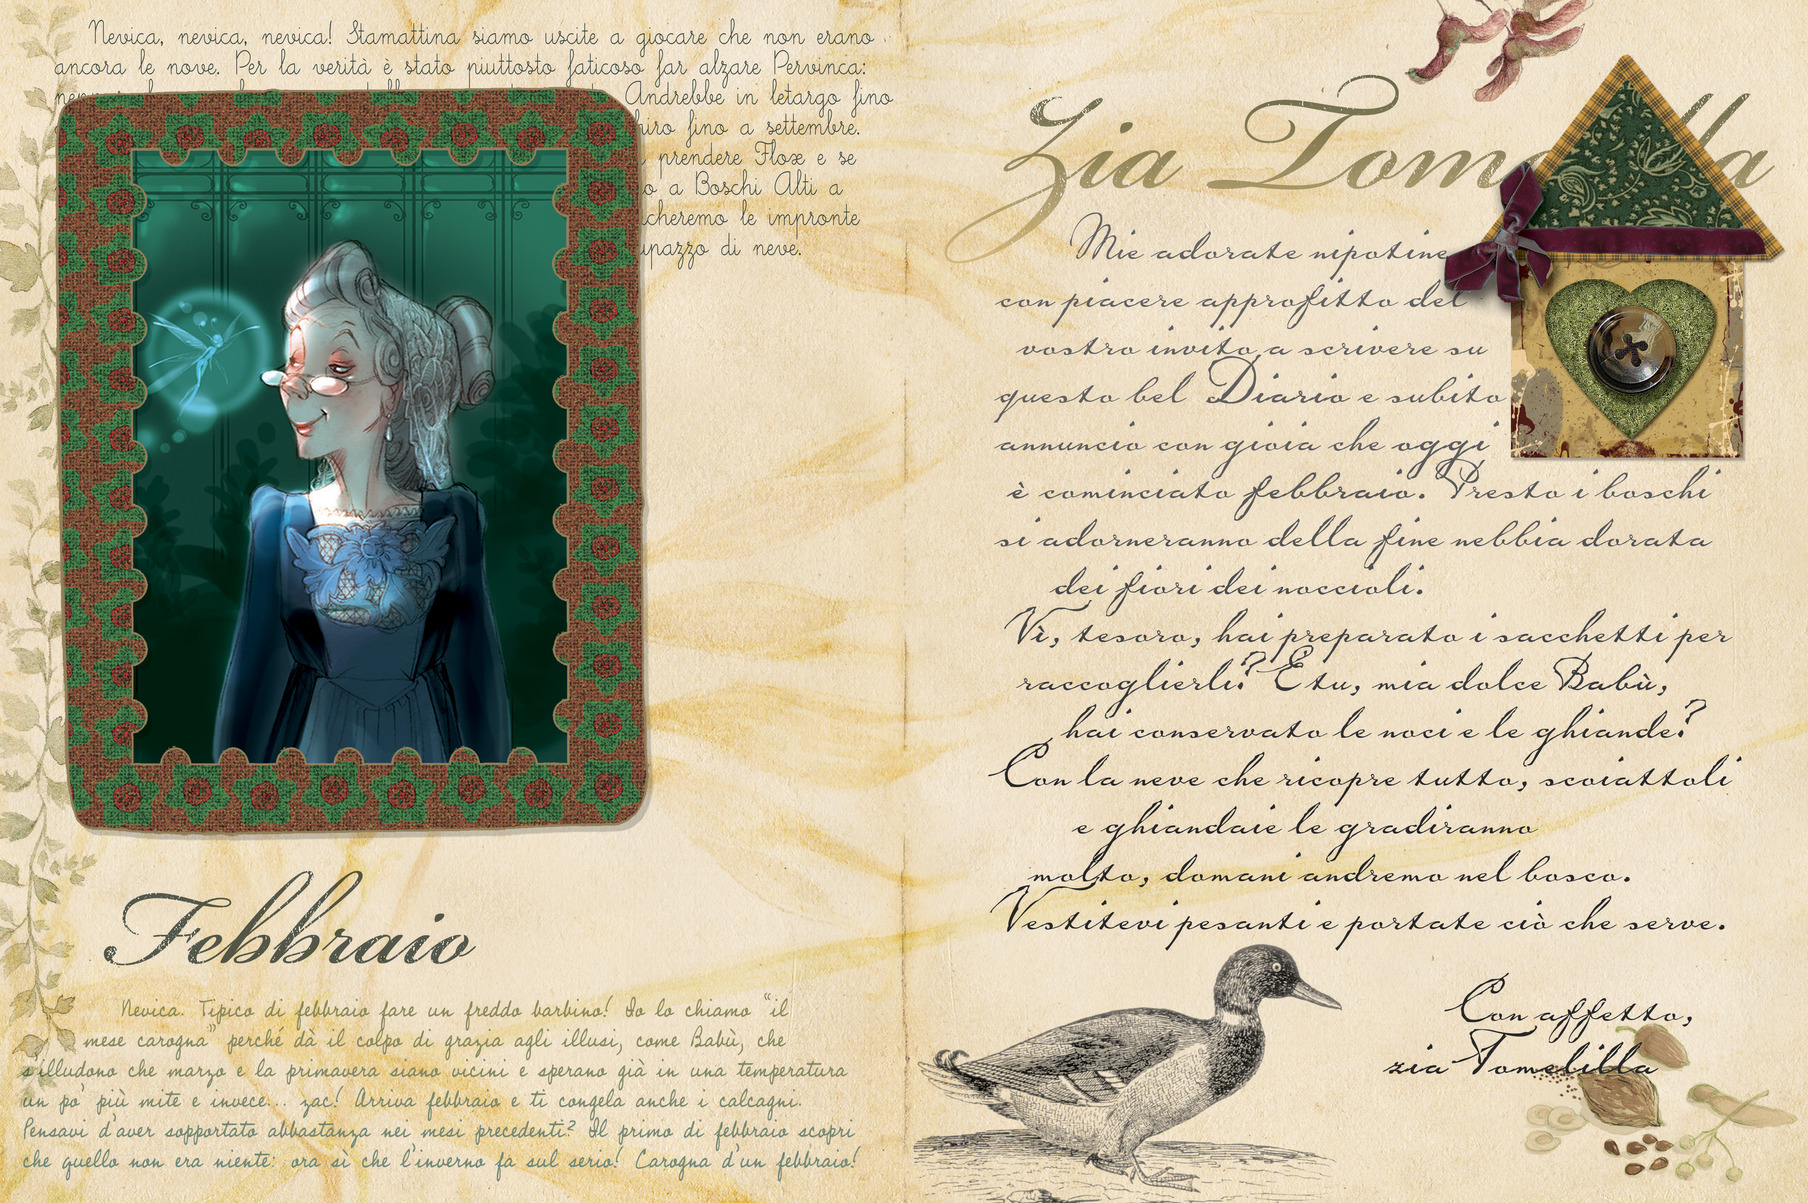 Nevica, nevica, nevica! Stamattina siamo uscite a giocare che non erano
ancora le nove. Per la verità è stato piuttosto faticoso far alzare Pervinca:
Andrebbe in letargo fino
fino a settembre.
prendere Flox e se
a Boschi Alti a
le impronte
di neve.
Febbraio
Nevica. Tipico di febbraio fare un freddo barbino! Io lo chiamo “il
mese carogna” perché dà il colpo di grazia agli illusi, come Babù, che
s'illudono che marzo e la primavera siano vicini e sperano già in una temperatura
un po' più mite e invece... zac! Arriva febbraio e ti congela anche i calcagni.
Pensavi d'aver sopportato abbastanza nei mesi precedenti? Il primo di febbraio scopri
che quello non era niente: ora sì che l'inverno fa sul serio! Carogna d'un febbraio!
Zia
Mie adorate nipotine
con piacere approfitto del
vostro invito a scrivere su
questo bel Diario e subito
annuncio con gioia che oggi
è cominciato febbraio. Presto i boschi
si adorneranno della fine nebbia dorata
dei fiori dei noccioli.
Vì, tesoro, hai preparato i sacchetti per
raccoglierli? E tu, mia dolce Babù,
hai conservato le noci e le ghiande?
Con la neve che ricopre tutto, scoiattoli
e ghiandaie le gradiranno
molto, domani andremo nel bosco.
Vestitevi pesanti e portate ciò che serve.
Con affetto,
zia Tomelilla